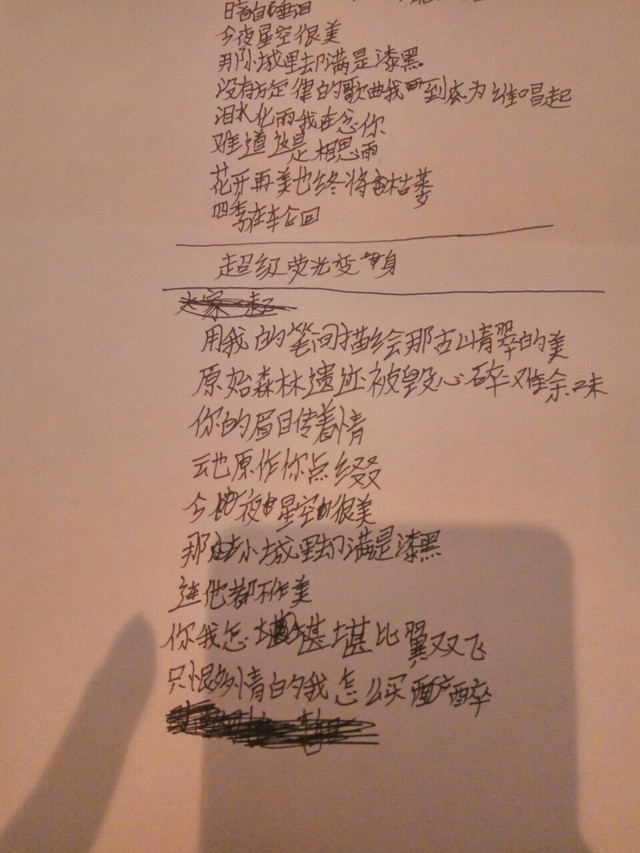 暗自垂泪
今夜星空很美
那小城里却满是漆黑
没有固定律的歌曲我 到底为谁唱起
泪水化雨我在念你
难道这是相思雨
花开再美也终将会枯萎
四季在轮回
超级荧光变 身
用我的笔问描绘那古山青翠的美
原始森林遗迹被毁心碎难余味
你的眉目传着情
云也愿作你点缀
今 夜 星空 很美
那 小城里却满是漆黑
连他都不作美
你我怎 堪比翼双飞
只恨多情的我怎么买醉